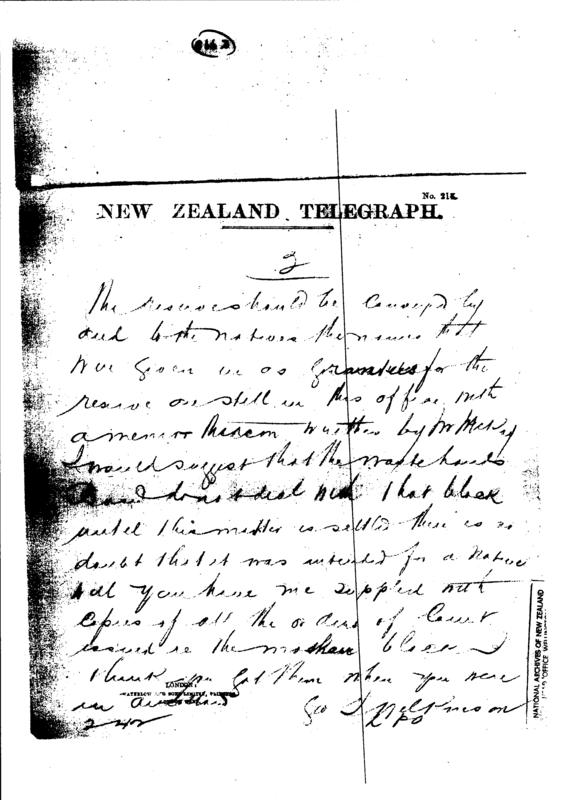 No. 215.
NEW ZEALAND TELEGRAPH.
2
The reserve should be conveyed by
deed to the natives the names that
were given in as Grantees for the
reserve are still in this office with
a memo thereon written by Mr
I would suggest that the waste lands
Board do not deal with that block
until this matter is settled there is no
doubt that it was intended for a Native
Will you have me supplied with
copies of all the orders of Court
issued re the block I
think you got them when you were
in Auckland
LONDON:
WATERLOW AND SONS LIMITED,
Geo T Wilkinson
LPO
NATIONAL ARCHIVES OF NEW ZEALAND